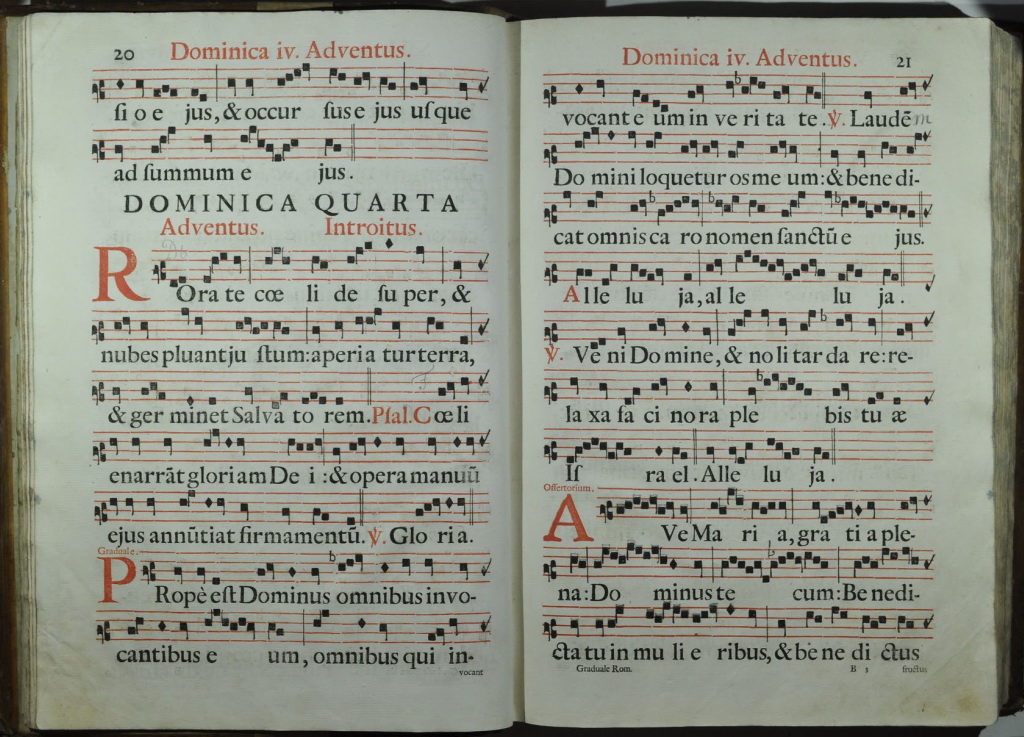 20 Dominica iv. Adventus.
ſi o e jus, & occur ſus e jus uſque
ad ſummum e jus.
DOMINICA QUARTA
Adventus. Introitus.
ROra te cœ li de ſu per, &
nubes pluant ju ſtum: aperi a tur terra,
& ger minet Salva to rem. Pſal. Cœ li
enarrāt glori am De i: & opera manuū
ejus annūtiat firmamentū. ℣. Glo ri a.
Graduale.
PRopè eſt Dominus omnibus invo-
cantibus e um, omnibus qui in-
vocant
Dominica iv. Adventus. 21
vocant e um in ve ri ta te. ℣. Laudē m
Do mini loquetur os me um: & bene di-
cat omnis ca ro nomen ſanctū e jus.
Alle lu ja, al le lu ja.
℣. Ve ni Do mine, & no li tar da re: re-
la xa fa ci no ra ple bis tu æ
Iſ ra el. Alle lu ja.
Offertorium.
AVe Ma ri a, gra ti a ple-
na: Do minus te cum: Be nedi-
cta tu in mu li e ribus, & be ne di ctus
Graduale Rom. B 3 fructus